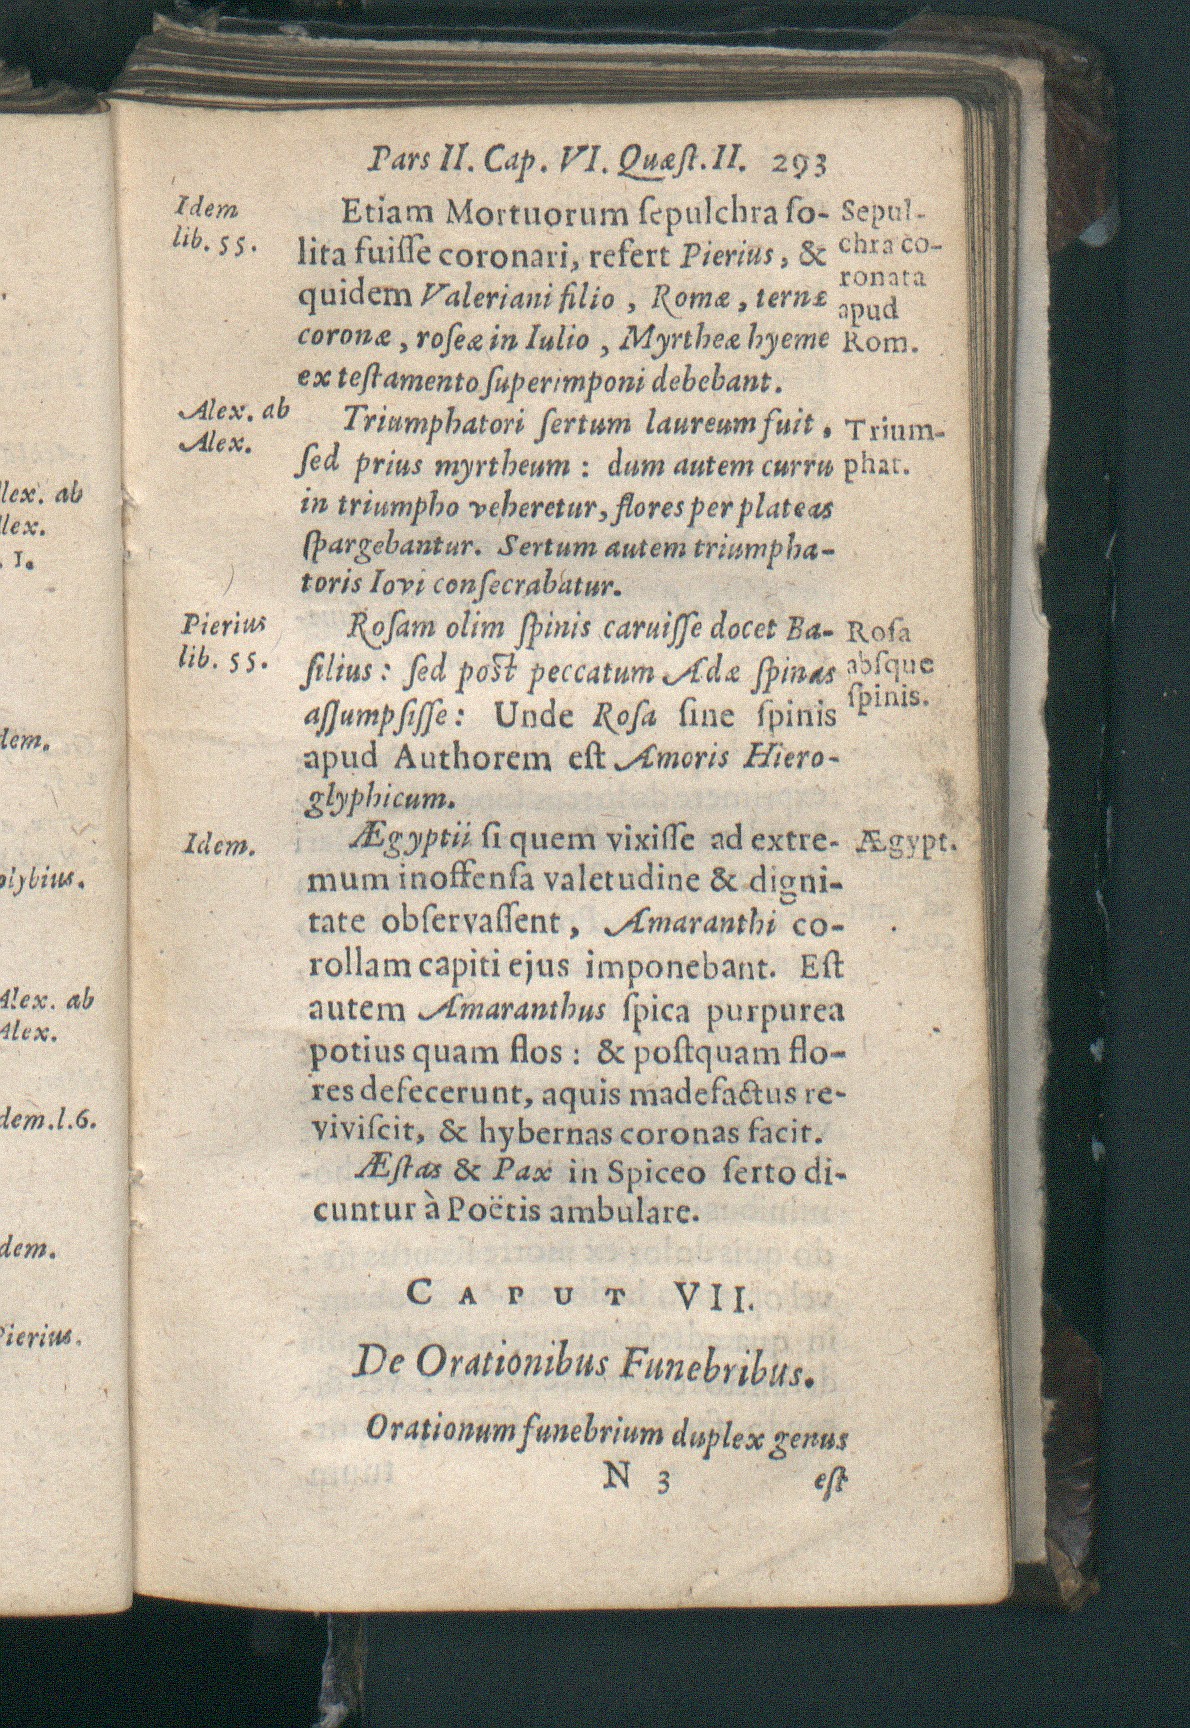 Pars II. Cap. VI. Quæſt. II. 293
Idem
lib. 55.
Etiam Mortuorum ſepulchra ſo-
lita fuiſſe coronari, refert Pierius, &
quidem Valeriani filio, Romæ, ternæ
coronæ, roſeæ in Iulio, Myrtheæ hyeme
ex teſtamento ſuperimponi debebant.
Sepul-
chra co-
ronata
apud
Rom.
Alex. ab
Alex.
Triumphatori ſertum laureum fuit,
ſed prius myrtheum: dum autem curru
in triumpho veheretur, flores per plateas
ſpargebantur. Sertum autem triumpha-
toris Iovi conſecrabatur.
Trium-
phat.
Pierius
lib. 55.
Roſam olim ſpinis caruiſſe docet Ba-
ſilius: ſed poſt peccatum Adæ ſpinas
aſſumpſiſſe: Unde Roſa ſine ſpinis
apud Authorem eſt Amoris Hiero-
glyphicum.
Roſa
abſque
ſpinis.
Idem.
Ægyptii ſi quem vixiſſe ad extre-
mum inoffenſa valetudine & digni-
tate obſervaſſent, Amaranthi co-
rollam capiti ejus imponebant. Eſt
autem Amaranthus ſpica purpurea
potius quam flos: & poſtquam flo-
res defecerunt, aquis madefactus re-
viviſcit, & hybernas coronas facit.
Ægypt.
Æſtas & Pax in Spiceo ſerto di-
cuntur à Poëtis ambulare.
CAPUT VII.
De Orationibus Funebribus.
Orationum funebrium duplex genus
N 3 eſt
lex. ab
lex.
. 1.
dem.
olybius.
Alex. ab
Alex.
dem. l. 6.
dem.
Pierius.